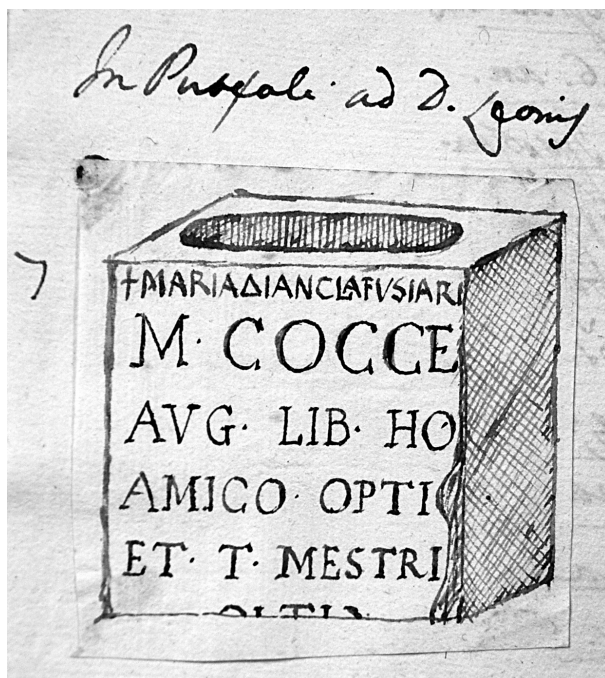 In ad D. Leonis
+MARIAΔIANCLAFVSIARI
M· COCCE
AVG· LIB· HO
AMICO· OPTI
ET· T· MESTRI